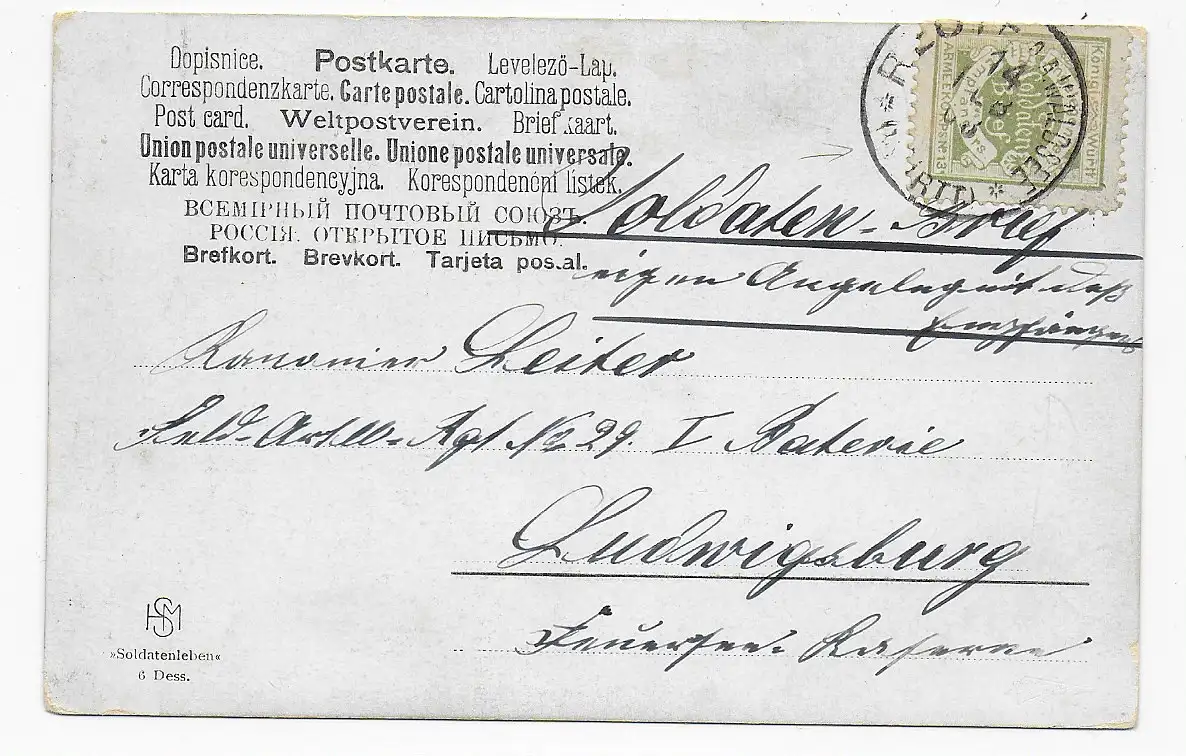 Dopisnice. Postkarte. Levelezö-Lap.
Correspondenzkarte. Carte postale. Cartolina postale.
Post card. Weltpostverein. Briefkaart.
Union postale universelle. Unione postale universale.
Karta korespondencyjna. Korespondenční lístek.
ВСЕМІРНЫЙ ПОЧТОВЫЙ СОЮЗЪ.
РОССІЯ. ОТКРЫТОЕ ПИСЬМО.
Brefkort. Brevkort. Tarjeta postal.
Soldaten-Brief
eigen Angelegenheit des
Empfängers
Kanonier Leiter
Feld-Artill-Rgt No 29. I Baterie
Ludwigsburg
Feuersee-Kaserne
HSM
»Soldatenleben«
6 Dess.
Soldaten
Brief